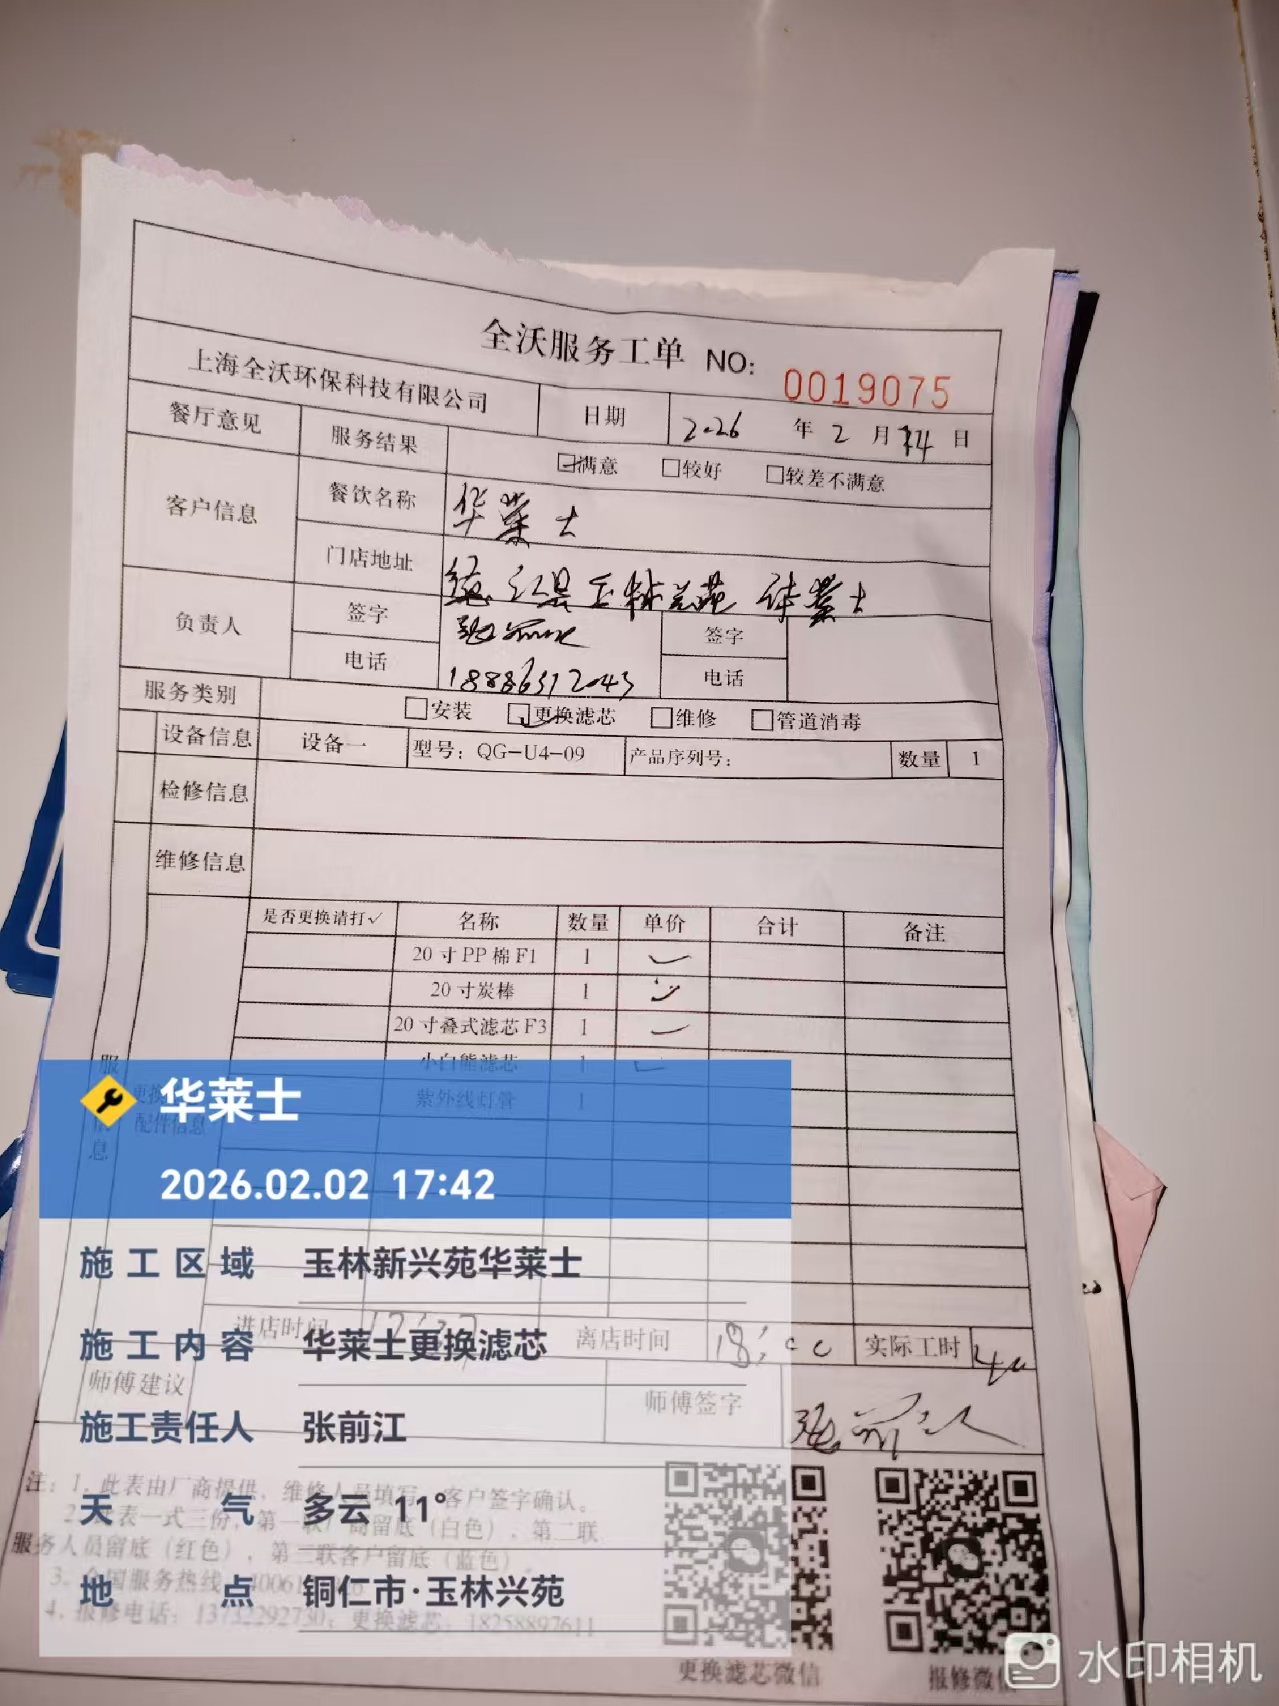 全沃服务工单 NO: 0019075
上海全沃环保科技有限公司 日期 2026 年 2 月 14 日
餐厅意见 服务结果 满意 较好 较差不满意
客户信息 餐饮名称 华莱士
门店地址 江县玉林兴苑 华莱士
负责人 签字 签字
电话 18886312043 电话
服务类别 安装 更换滤芯 维修 管道消毒
设备信息 设备一 型号: QG-U4-09 产品序列号: 数量 1
检修信息
维修信息
是否更换请打✓ 名称 数量 单价 合计 备注
20寸PP棉F1 1
20寸炭棒 1
20寸叠式滤芯F3 1
小白熊滤芯 1
紫外线灯管 1
服 息
更换
配件信息
华莱士
2026.02.02 17:42
施工区域 玉林新兴苑华莱士
进店时间 离店时间 18:00 实际工时 40
施工内容 华莱士更换滤芯
师傅建议 师傅签字 张前江
施工责任人 张前江
注: 1. 此表由厂商提供, 维修人员填写, 客户签字确认。
天气 多云 11°
2. 表一式三份, 第一联厂商留底(白色), 第二联
服务人员留底(红色), 第三联客户留底(蓝色)。
3. 全国服务热线
地点 铜仁市·玉林兴苑
4. 报修电话: 13732292730; 更换滤芯: 18258897611
更换滤芯微信 报修微信
水印相机